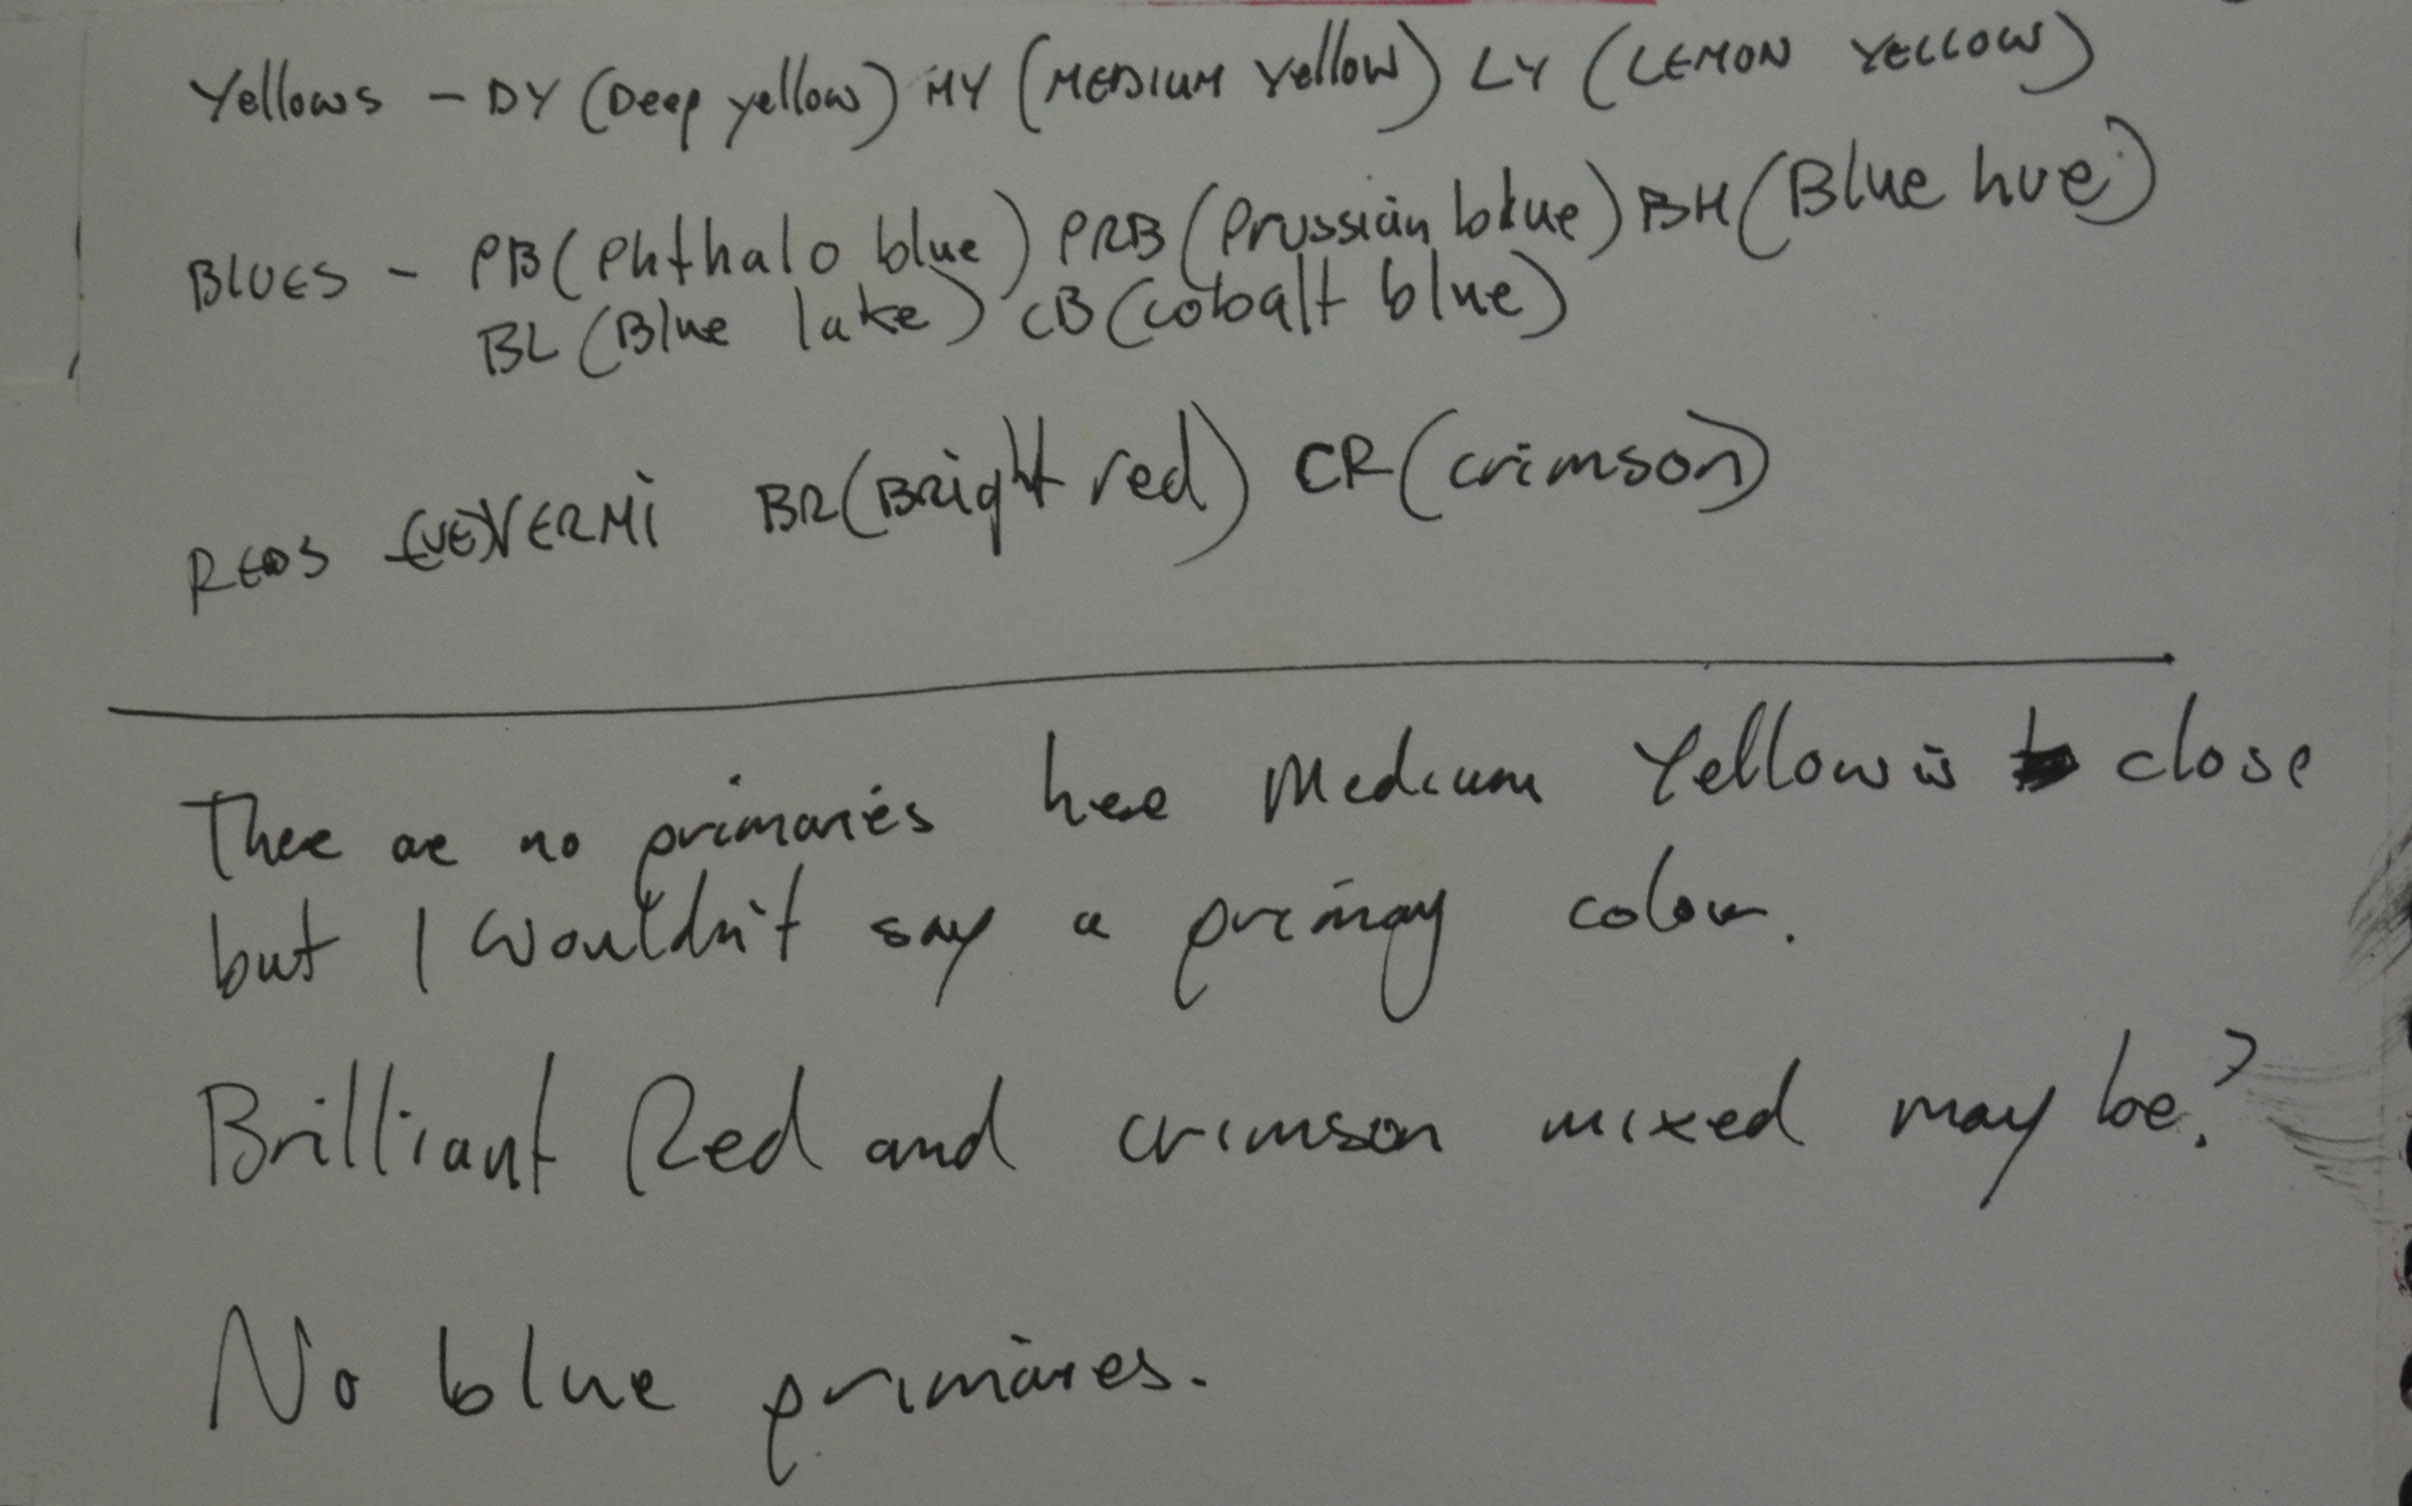 Yellows - DY (Deep yellow) MY (MEDIUM Yellow) LY (LEMON YELLOW)
BLUES - PB (Phthalo blue) PRB (Prussian blue) BH (Blue hue)
BL (Blue lake) CB (cobalt blue)
REDS (VE) VERMI BR (BRight red) CR (crimson)
There are no primaries here Medium Yellow is close
but I wouldn't say a primary colour.
Brilliant Red and crimson mixed may be?
No blue primaries.